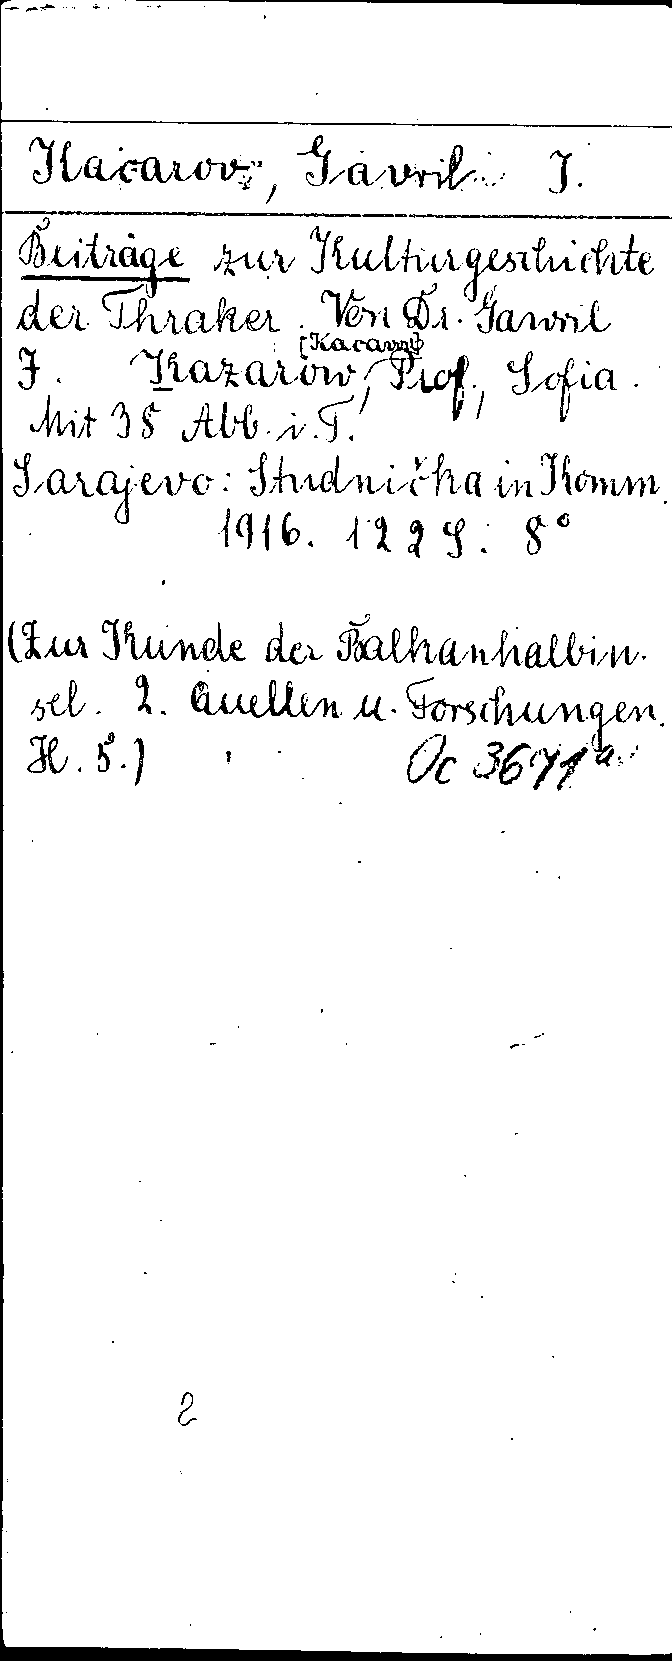 Kacarov, Gavril J.
Beiträge zur Kulturgeschichte
der Thraker. Von Dr. Gawril
[Kacarov]
J. Kazarow, Prof., Sofia.
Mit 38 Abb. i. T.
Sarajevo: Studnička in Komm.
1916. 122 S. 8°
(Zur Kunde der Balkanhalbin-
sel. 2. Quellen u. Forschungen.
H. 5.)
Oc 3671a
2